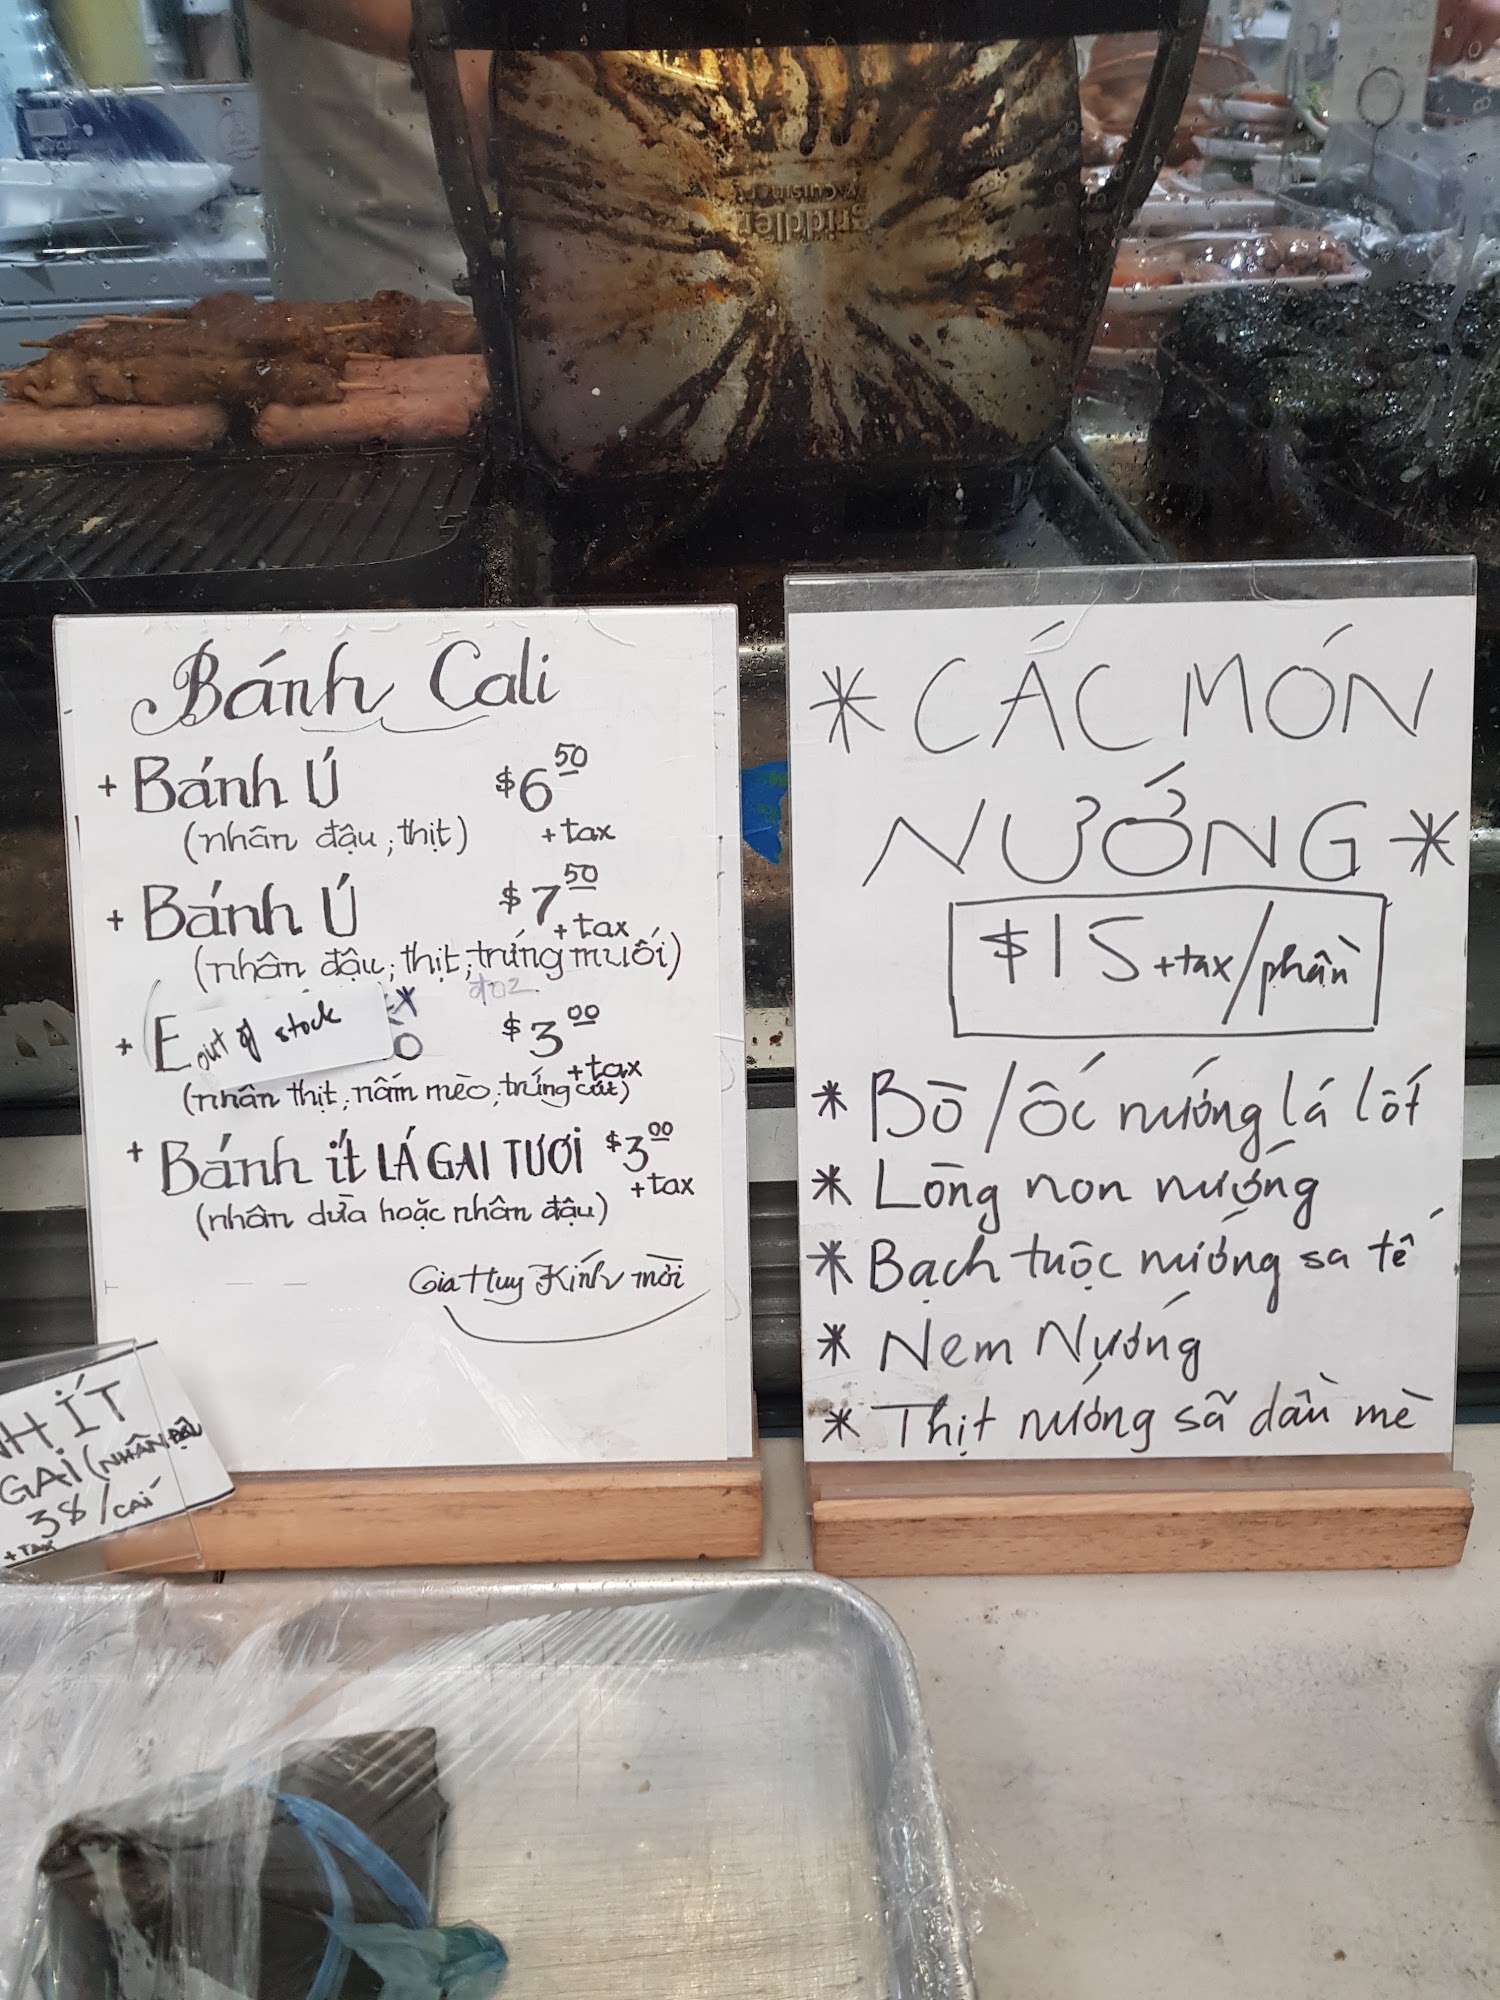 Griddler
Cuisinart
Bánh Cali
+ Bánh Ú $6.50
(nhân đậu, thịt) + tax
+ Bánh Ú $7.50
+ tax
(nhân đậu, thịt, trứng muối)
+ E out of stock $3.00
+ tax
(nhân thịt, nấm mèo, trứng cút)
+ Bánh ít LÁ GAI TƯƠI $3.00
+ tax
(nhân dừa hoặc nhân đậu)
Gia Huy Kính mời
* CÁC MÓN
NƯỚNG *
$15 + tax/phần
* Bò / Ốc nướng lá lốt
* Lòng non nướng
* Bạch tuộc nướng sa tế
* Nem Nướng
* Thịt nướng sã dầu mè
NH ÍT
GAI (NHÂN ĐẬU
3$/CÁI
+ TAX